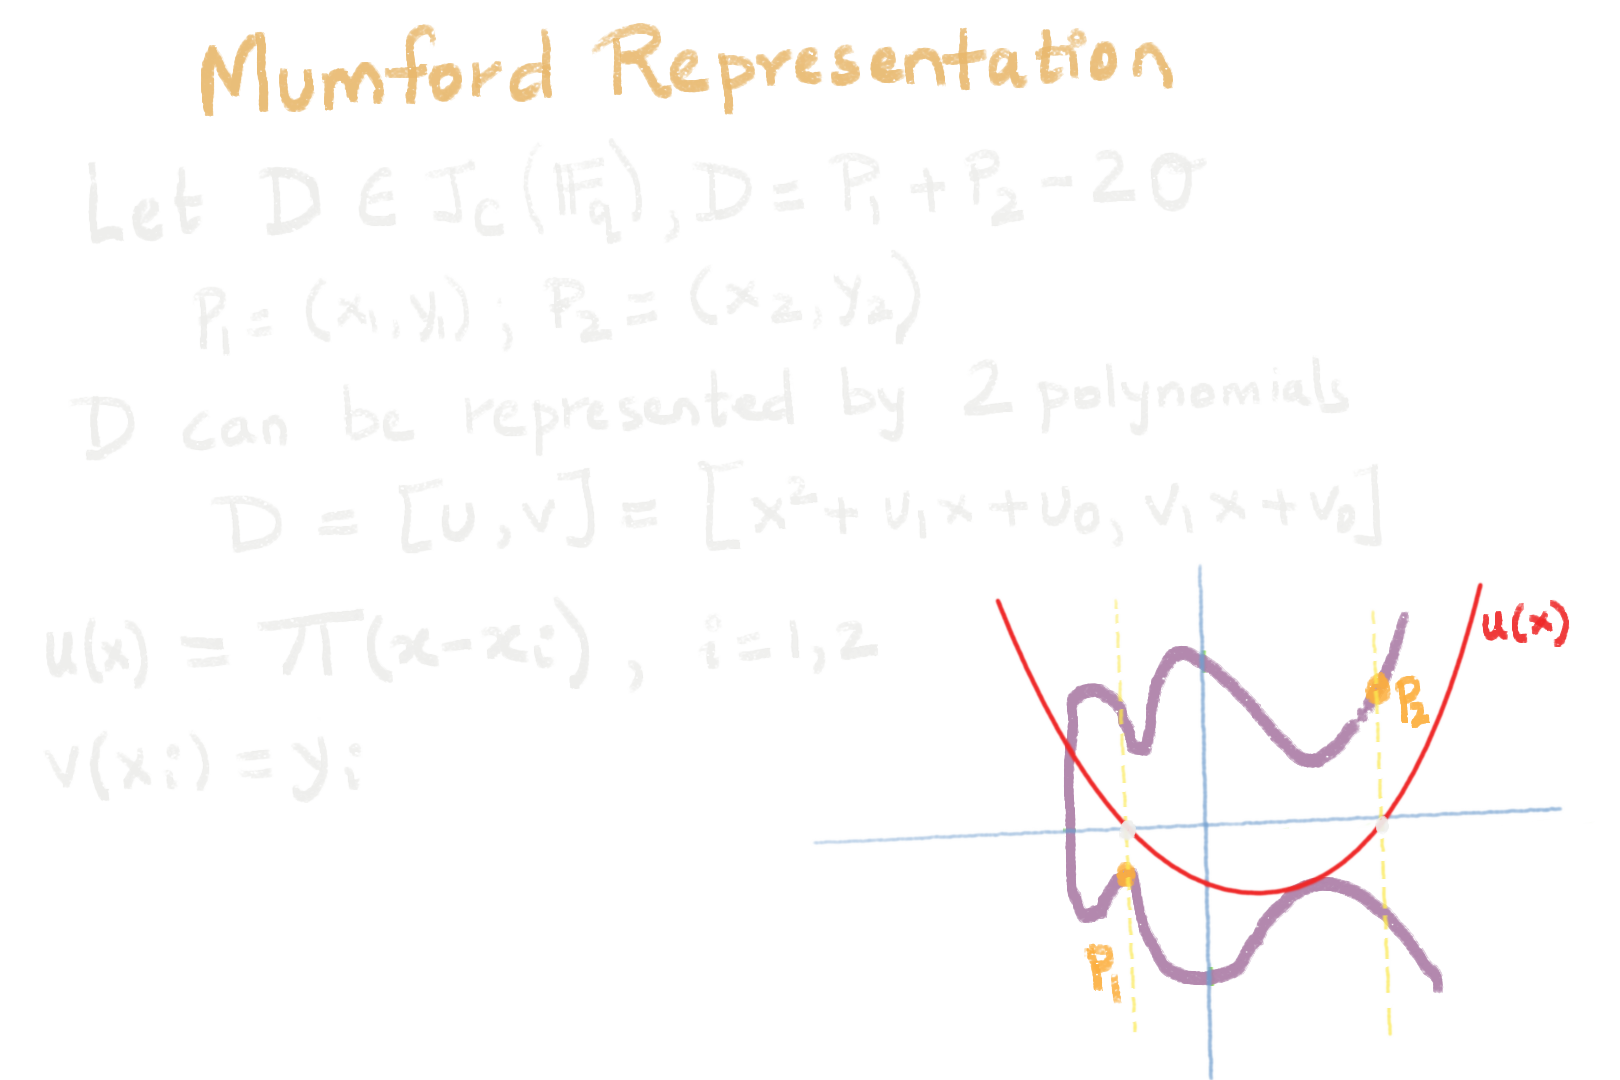 Mumford Representation
Let D ∈ J_C(𝔽_q), D = P_1 + P_2 - 2O
P_1 = (x_1, y_1) ; P_2 = (x_2, y_2)
D can be represented by 2 polynomials
D = [u, v] = [x² + u_1 x + u_0, v_1 x + v_0]
u(x) = π(x - x_i), i = 1, 2
v(x_i) = y_i
u(x)
P_2
P_1